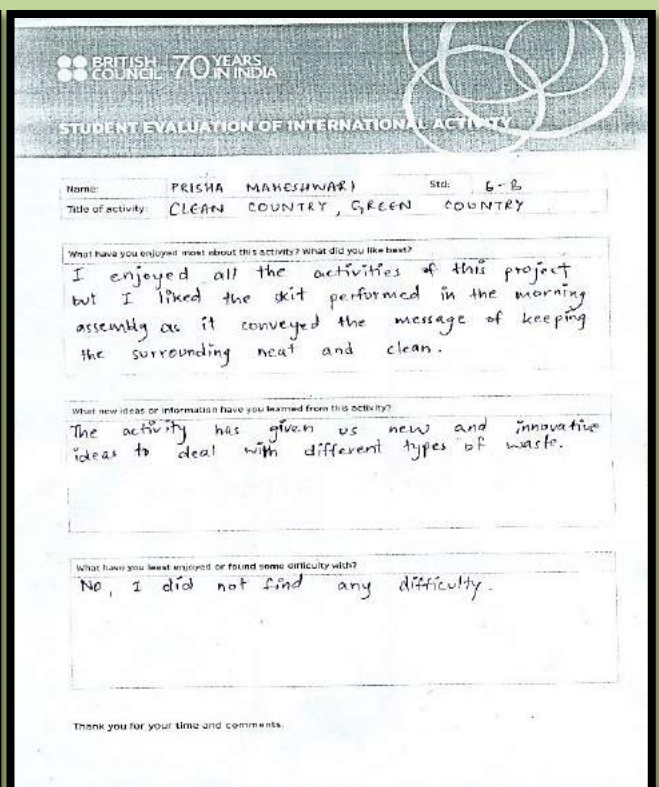 BRITISH COUNCIL 70 YEARS IN INDIA
STUDENT EVALUATION OF INTERNATIONAL ACTIVITY
Name: PRISHA MAHESHWARI Std: 6-B
Title of activity: CLEAN COUNTRY, GREEN COUNTRY
What have you enjoyed most about this activity? What did you like best?
I enjoyed all the activities of this project
but I liked the skit performed in the morning
assembly as it conveyed the message of keeping
the surrounding neat and clean.
What new ideas or information have you learned from this activity?
The activity has given us new and innovative
ideas to deal with different types of waste.
What have you least enjoyed or found some difficulty with?
No, I did not find any difficulty.
Thank you for your time and comments.